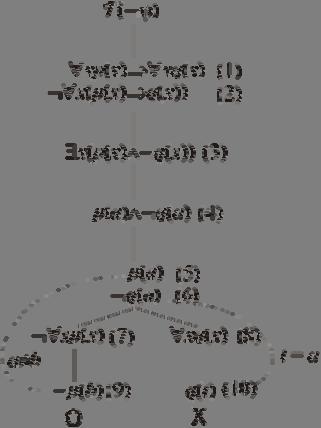 ∀xp(x)→∀xq(x) (1)
¬∀x(p(x)→q(x)) (2)
∃x(p(x)∧¬q(x)) (3)
p(a)∧¬q(a) (4)
p(a) (5)
¬q(a) (6)
¬∀xp(x) (7) ∀xq(x) (8)
a≠b t=a
¬p(b) (9) q(t) (10)
O X